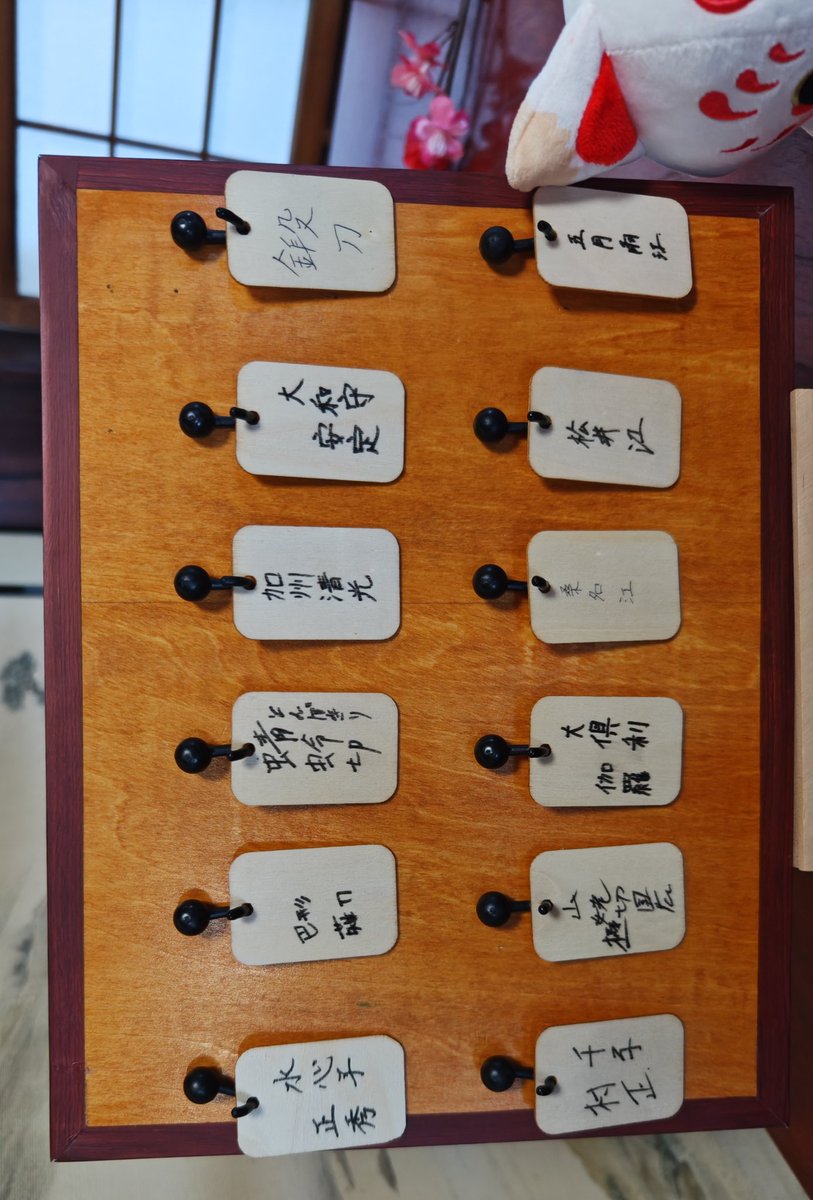 鍛刀
大和守
安定
加州清光
とんぼきり
蜻蛉切
巴形
薙刀
水心子
正秀
五月雨江
松井江
桑名江
大倶利
伽羅
山姥切国広
千子
村正